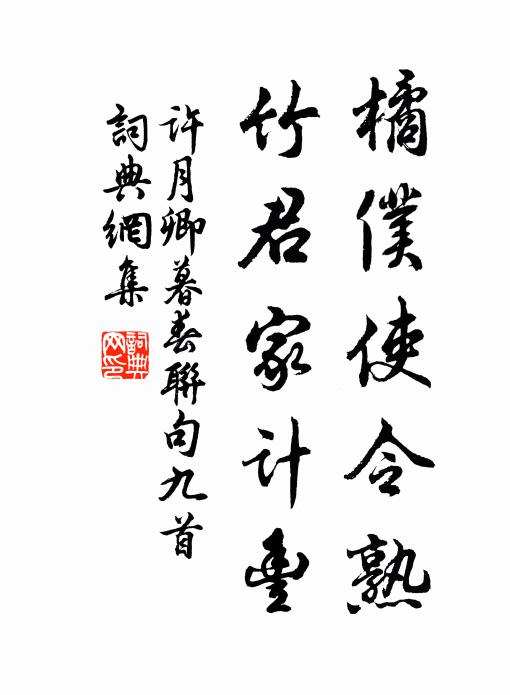 橘僕使令熟
竹君家計豊
許月卿暮春聯句九首
詞典網集
詞典網印